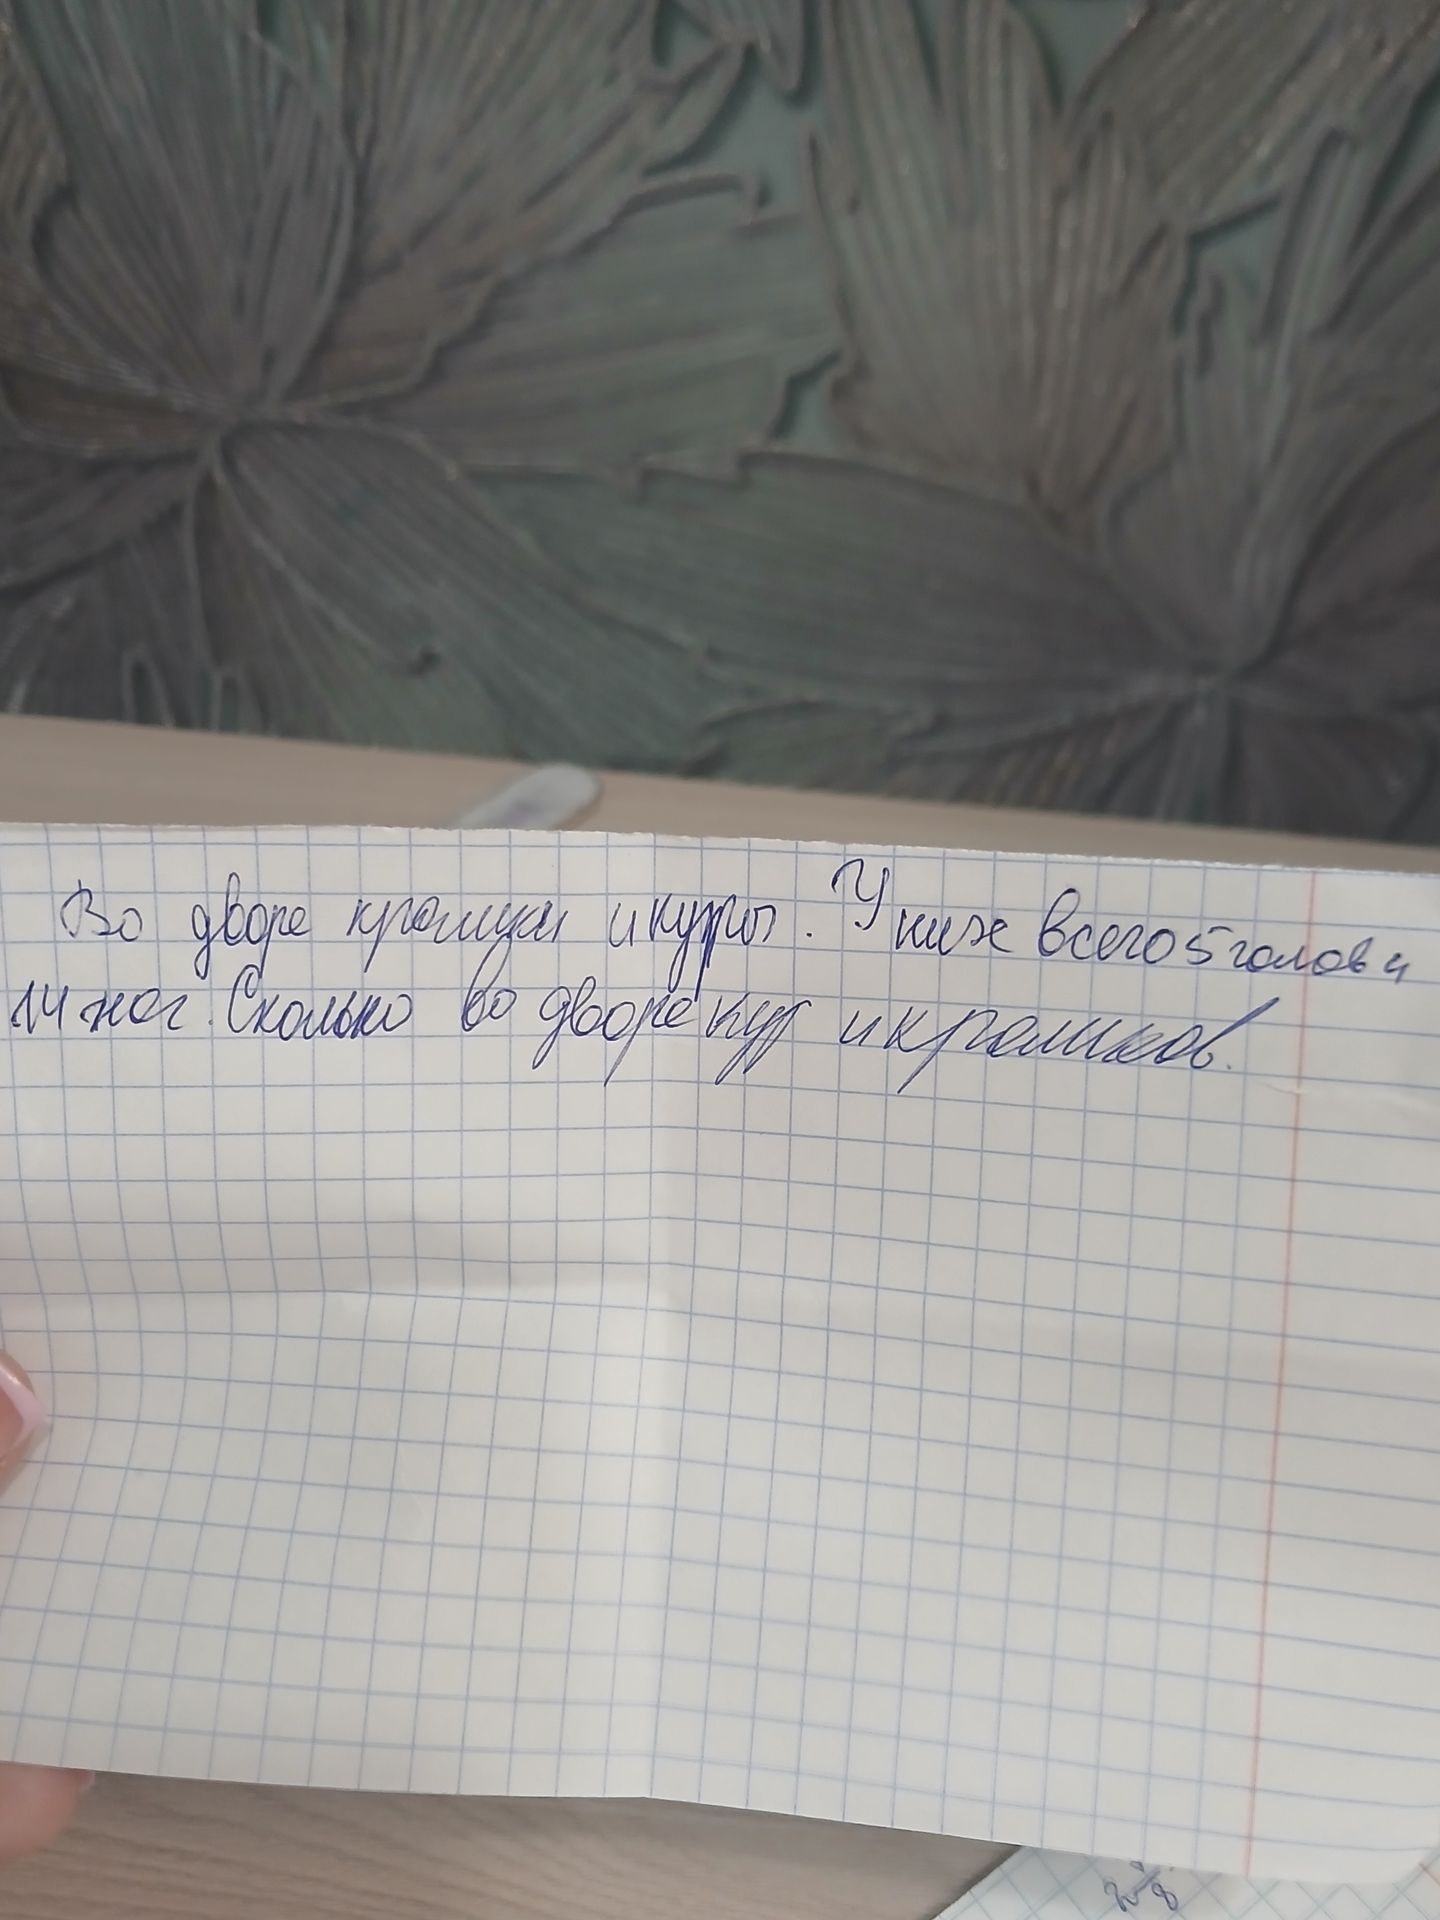 Во дворе кролики и куры. У них всего 5 голов и
14 ног. Сколько во дворе кур и кроликов.